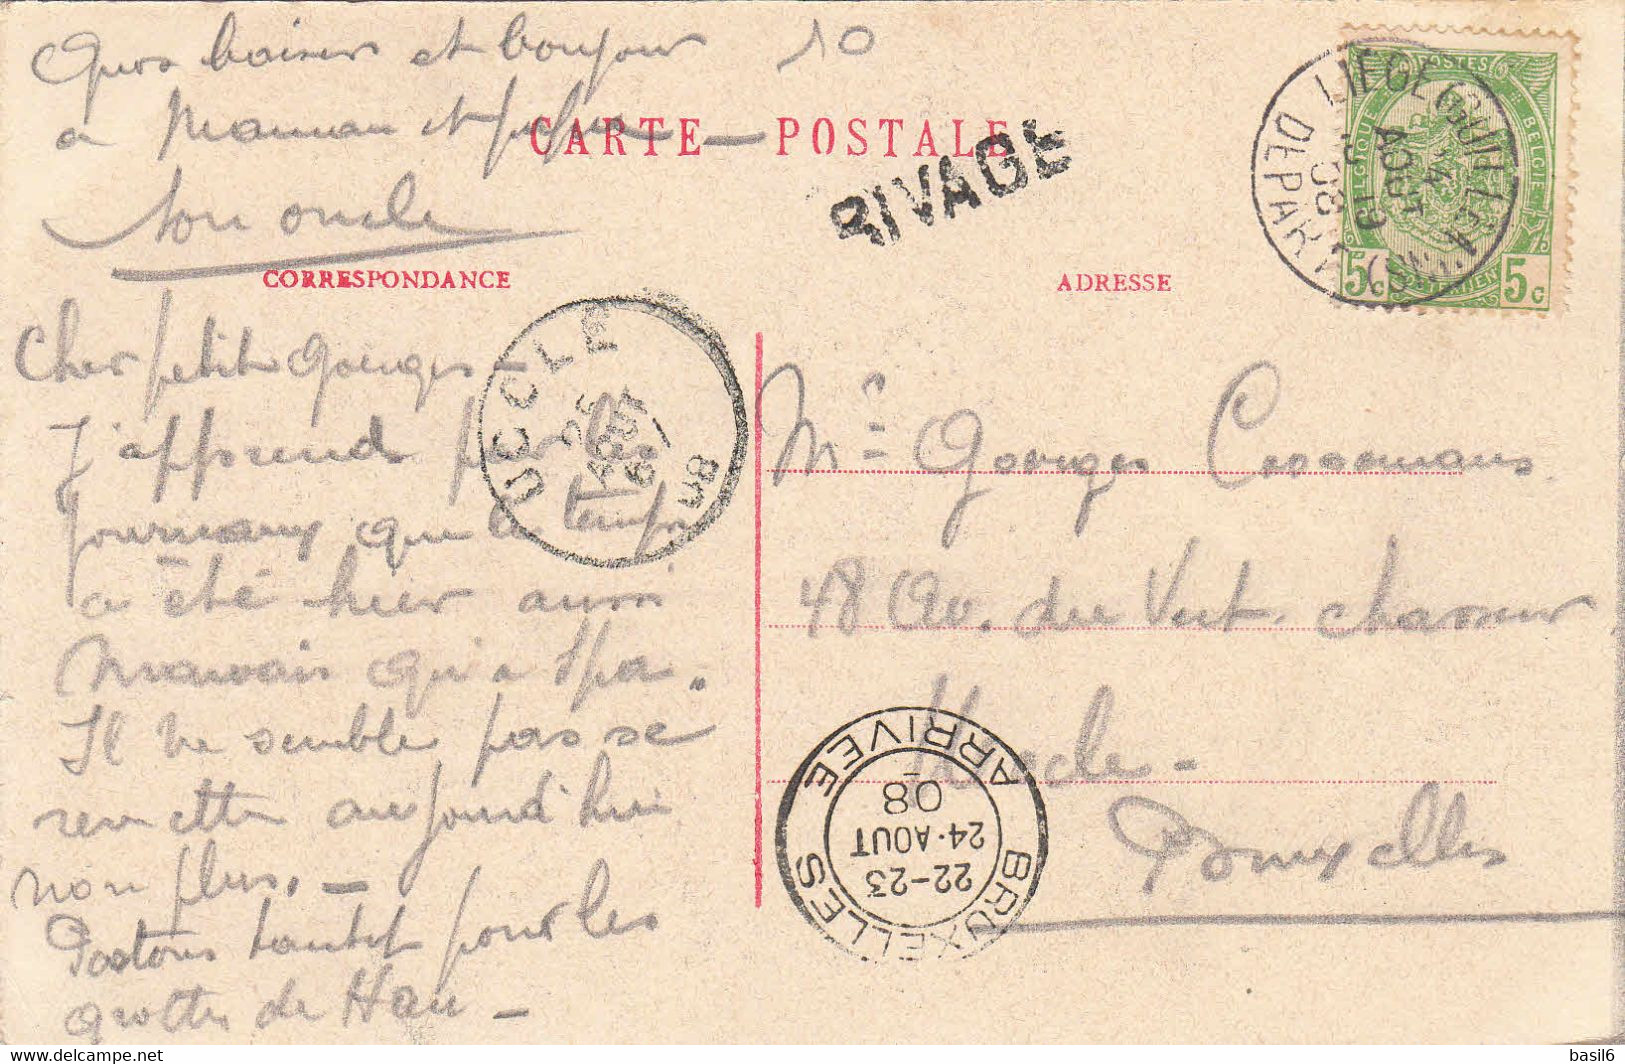 Gros baiser et bonjour
a Maman et
ton oncle
10
CARTE POSTALE
RIVAGE
CORRESPONDANCE
ADRESSE
LIEGE (GUILLEMINS)
24
AOUT
19
08
DEPART
POSTES
BELGIQUE
BELGIE
5c 5c
Cher petit Georges -
J'apprend par les
journaux que le temps
a été hier aussi
mauvais qu'a Spa.
Il ne semble pas se
remettre aujourd'hui
non plus. -
Partons tantot pour les
grottes de Han -
UCCLE
25
AOUT
6
08
Mr Georges Cressemans
48 Av. du Vert chasseur
Uccle -
Bruxelles
BRUXELLES ARRIVEE
22-23
24·AOUT
08
delcampe.net
basil6